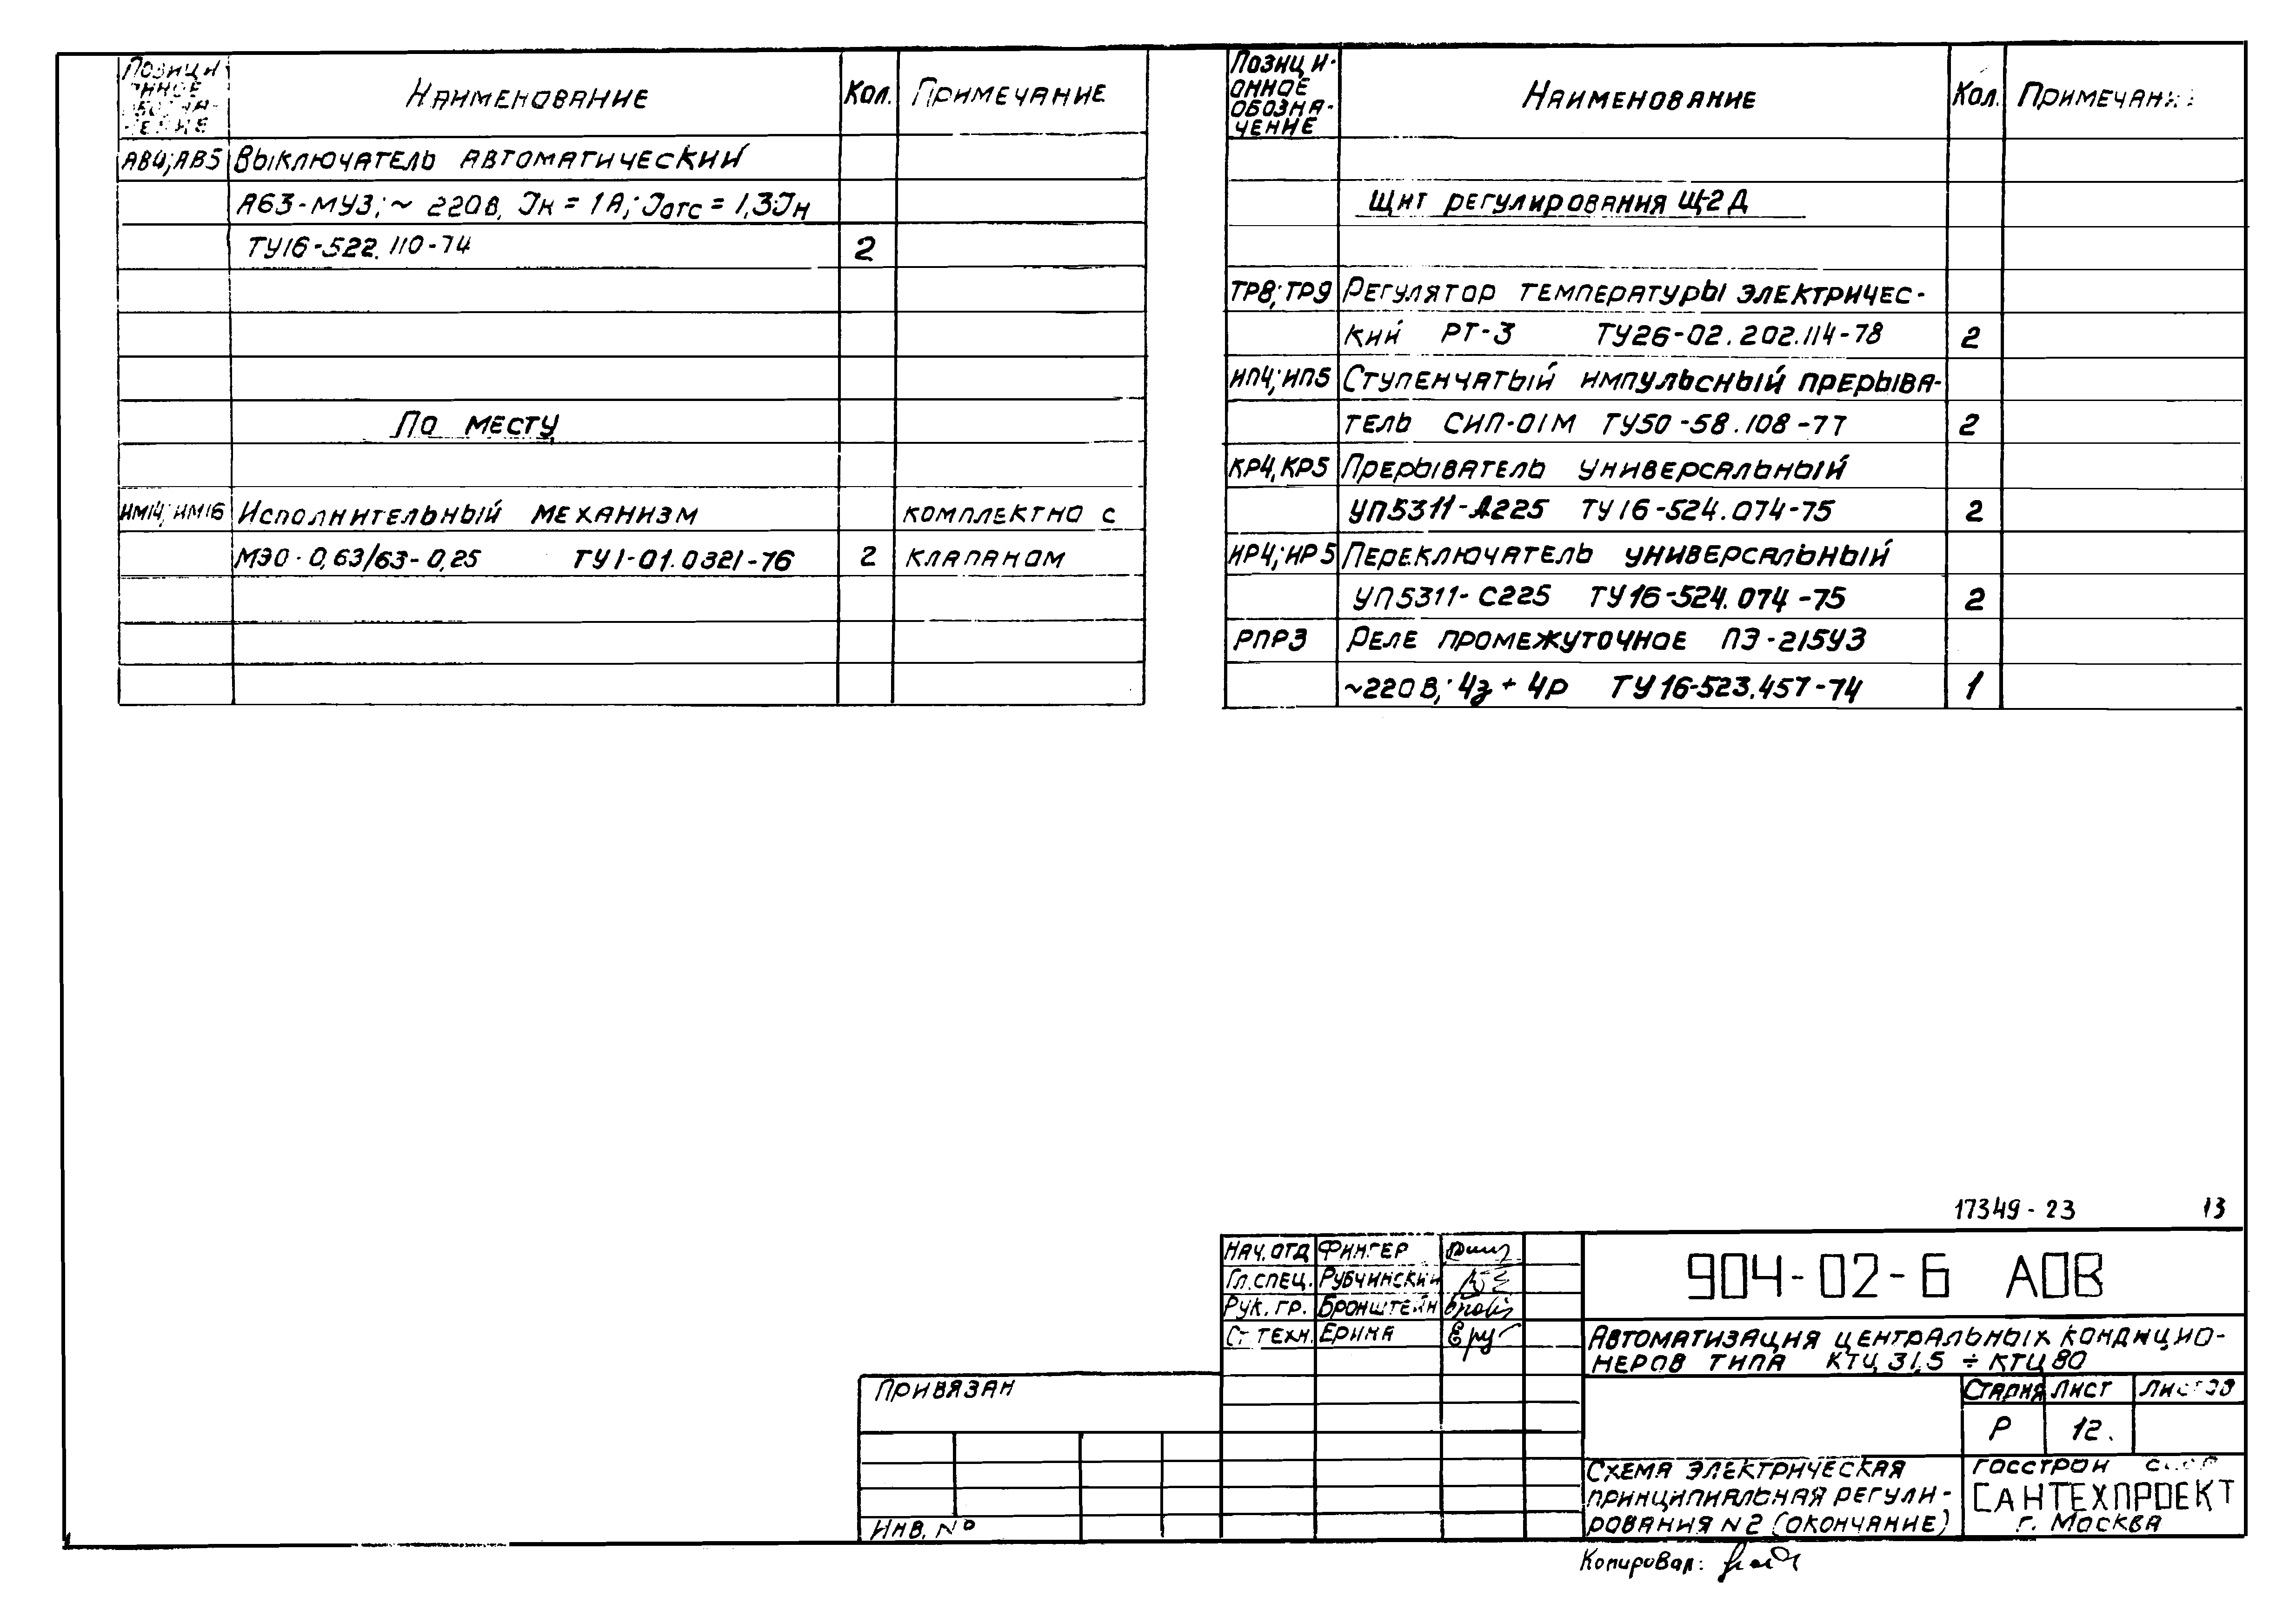 Позици
онное
обозна-
чение
Наименование
Кол.
Примечание
АВ4; АВ5 Выключатель автоматический
А63-МУ3; ~ 220В, Iн = 1А; Iотс = 1,3Iн
ТУ16-522.110-74 2
По месту
ИМ14; ИМ16 Исполнительный механизм комплектно с
МЭО-0,63/63-0,25 ТУ1-01.0321-76 2 клапаном
Позици-
онное
обозна-
чение
Наименование
Кол.
Примечани
Щит регулирования Щ-2Д
ТР8; ТР9 Регулятор температуры электричес-
кий РТ-3 ТУ26-02.202.114-78 2
ИП4; ИП5 Ступенчатый импульсный прерыва-
тель СИП-01М ТУ50-58.108-77 2
КР4, КР5 Прерыватель универсальный
УП5311-А225 ТУ16-524.074-75 2
ИР4; ИР5 Переключатель универсальный
УП5311-С225 ТУ16-524.074-75 2
РПР3 Реле промежуточное ПЭ-21 5У3
~220В; 4з + 4р ТУ16-523.457-74 1
17349-23 13
Нач. отд Фингер
Гл. спец. Рубчинский
Рук. гр. Бронштейн
Ст техн. Ерина
904-02-6 АОВ
Автоматизация центральных кондицио-
неров типа КТЦ 31,5 ÷ КТЦ 80
Стадия Лист Листов
Р 12.
Схема электрическая
принципиальная регули-
рования N2 (окончание)
Госстрой СССР
САНТЕХПРОЕКТ
г. Москва
Привязан
Инв. №
Копировал: